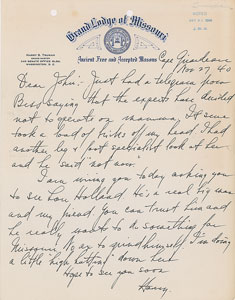 Grand Lodge of Missouri
Ancient Free and Accepted Masons
HARRY S. TRUMAN
WASHINGTON, D.C.
Cape Girardeau
Nov 27, 40
Dear John:- Just had a telegram from
Bess saying that the experts have decided
not to operate on mamma. It
took a load of bricks off my head. I had
another leg & foot specialist look at her
and he said not now.
I am wiring you today asking you
to see Lou Holland. He's a real big man
and my friend. You can trust him and
he really wants to do something for
Missouri. I'm doing
a little high hatting down here
Hope to see you soon
Harry.